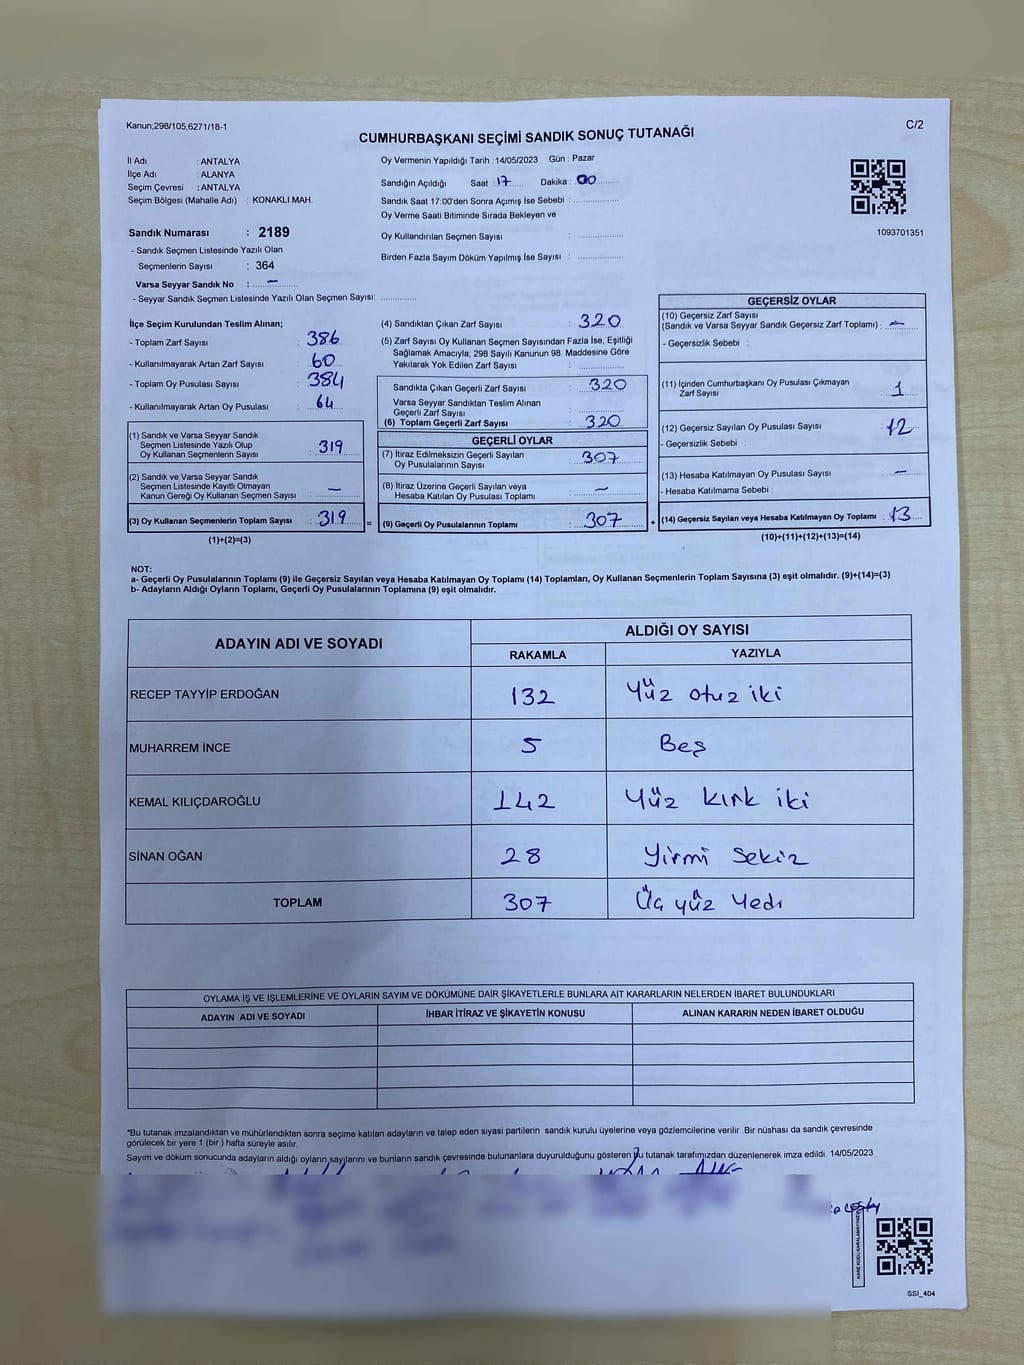 Kanun;298/105,6271/18-1
C/2
CUMHURBAŞKANI SEÇİMİ SANDIK SONUÇ TUTANAĞI
İl Adı : ANTALYA
İlçe Adı : ALANYA
Seçim Çevresi : ANTALYA
Seçim Bölgesi (Mahalle Adı) : KONAKLI MAH.
Sandık Numarası : 2189
- Sandık Seçmen Listesinde Yazılı Olan
Seçmenlerin Sayısı : 364
Varsa Seyyar Sandık No : –
- Seyyar Sandık Seçmen Listesinde Yazılı Olan Seçmen Sayısı:
Oy Vermenin Yapıldığı Tarih : 14/05/2023 Gün : Pazar
Sandığın Açıldığı Saat : 17 Dakika : 00
Sandık Saat 17:00'den Sonra Açımış İse Sebebi :
Oy Verme Saati Bitiminde Sırada Bekleyen ve
Oy Kullandırılan Seçmen Sayısı :
Birden Fazla Sayım Döküm Yapılmış İse Sayısı :
1093701351
İlçe Seçim Kurulundan Teslim Alınan;
- Toplam Zarf Sayısı : 386
- Kullanılmayarak Artan Zarf Sayısı : 60
- Toplam Oy Pusulası Sayısı : 384
- Kullanılmayarak Artan Oy Pusulası : 64
(1) Sandık ve Varsa Seyyar Sandık
Seçmen Listesinde Yazılı Olup
Oy Kullanan Seçmenlerin Sayısı : 319
(2) Sandık ve Varsa Seyyar Sandık
Seçmen Listesinde Kayıtlı Olmayan
Kanun Gereği Oy Kullanan Seçmen Sayısı : –
(3) Oy Kullanan Seçmenlerin Toplam Sayısı : 319 =
(1)+(2)=(3)
(4) Sandıktan Çıkan Zarf Sayısı : 320
(5) Zarf Sayısı Oy Kullanan Seçmen Sayısından Fazla İse, Eşitliği
Sağlamak Amacıyla; 298 Sayılı Kanunun 98. Maddesine Göre
Yakılarak Yok Edilen Zarf Sayısı :
Sandıkta Çıkan Geçerli Zarf Sayısı : 320
Varsa Seyyar Sandıktan Teslim Alınan
Geçerli Zarf Sayısı :
(6) Toplam Geçerli Zarf Sayısı : 320
GEÇERLİ OYLAR
(7) İtiraz Edilmeksizin Geçerli Sayılan
Oy Pusulalarının Sayısı : 307
(8) İtiraz Üzerine Geçerli Sayılan veya
Hesaba Katılan Oy Pusulası Toplamı : –
(9) Geçerli Oy Pusulalarının Toplamı : 307 +
GEÇERSİZ OYLAR
(10) Geçersiz Zarf Sayısı
(Sandık ve Varsa Seyyar Sandık Geçersiz Zarf Toplamı) : –
- Geçersizlik Sebebi :
(11) İçinden Cumhurbaşkanı Oy Pusulası Çıkmayan
Zarf Sayısı : 1
(12) Geçersiz Sayılan Oy Pusulası Sayısı : 12
- Geçersizlik Sebebi :
(13) Hesaba Katılmayan Oy Pusulası Sayısı : –
- Hesaba Katılmama Sebebi :
(14) Geçersiz Sayılan veya Hesaba Katılmayan Oy Toplamı : 13
(10)+(11)+(12)+(13)=(14)
NOT:
a- Geçerli Oy Pusulalarının Toplamı (9) ile Geçersiz Sayılan veya Hesaba Katılmayan Oy Toplamı (14) Toplamları, Oy Kullanan Seçmenlerin Toplam Sayısına (3) eşit olmalıdır. (9)+(14)=(3)
b- Adayların Aldığı Oyların Toplamı, Geçerli Oy Pusulalarının Toplamına (9) eşit olmalıdır.
ADAYIN ADI VE SOYADI
ALDIĞI OY SAYISI
RAKAMLA YAZIYLA
RECEP TAYYİP ERDOĞAN 132 Yüz otuz iki
MUHARREM İNCE 5 Beş
KEMAL KILIÇDAROĞLU 142 Yüz kırk iki
SİNAN OĞAN 28 Yirmi Sekiz
TOPLAM 307 Üç yüz Yedi
OYLAMA İŞ VE İŞLEMLERİNE VE OYLARIN SAYIM VE DÖKÜMÜNE DAİR ŞİKAYETLERLE BUNLARA AİT KARARLARIN NELERDEN İBARET BULUNDUKLARI
ADAYIN ADI VE SOYADI İHBAR İTİRAZ VE ŞİKAYETİN KONUSU ALINAN KARARIN NEDEN İBARET OLDUĞU
*Bu tutanak imzalandıktan ve mühürlendikten sonra seçime katılan adayların ve talep eden siyasi partilerin sandık kurulu üyelerine veya gözlemcilerine verilir. Bir nüshası da sandık çevresinde
görülecek bir yere 1 (bir) hafta süreyle asılır.
Sayım ve döküm sonucunda adayların aldığı oyların sayılarını ve bunların sandık çevresinde bulunanlara duyurulduğunu gösteren bu tutanak tarafımızdan düzenlenerek imza edildi. 14/05/2023
KARE KODU KARALAMAYINIZ
SSI_404